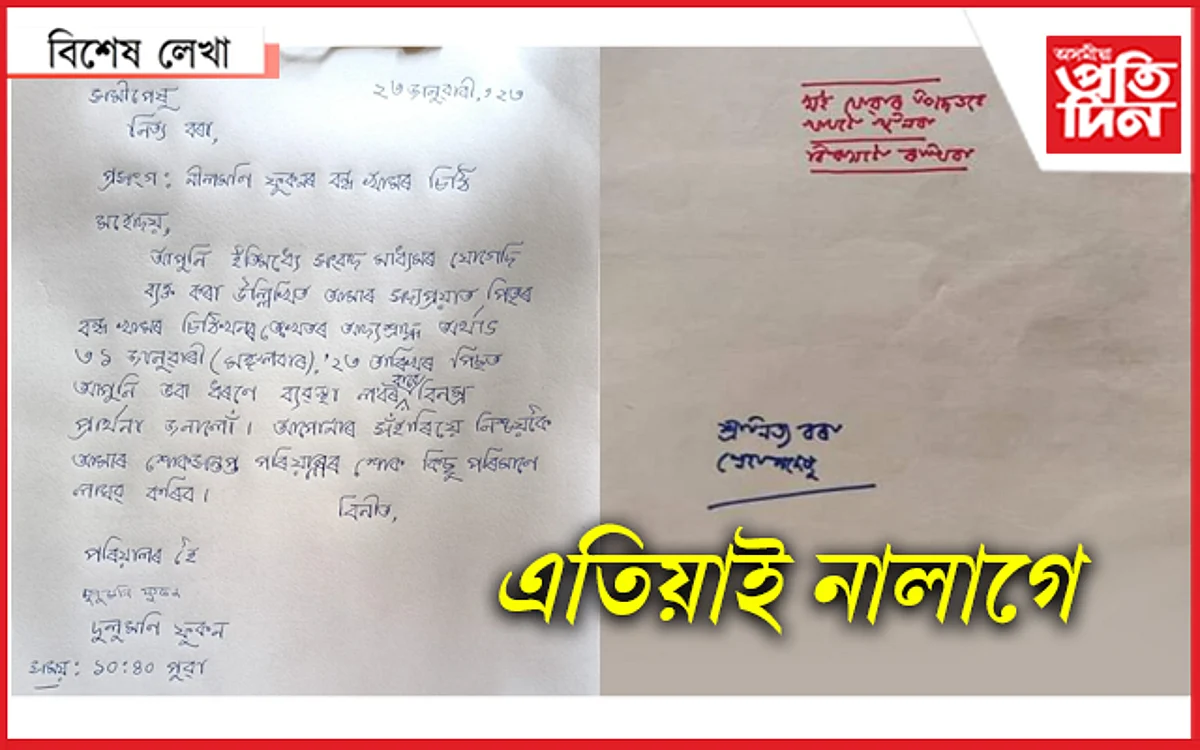 বিশেষ লেখা
অসমীয়া
প্ৰতি
দিন
২৬ জানুৱাৰী, '২৩
নিত্য বৰা,
প্ৰসংগ: নীলমণি ফুকনৰ বন্ধ খামৰ চিঠি
মহোদয়,
আপুনি ইতিমধ্যে সংবাদ মাধ্যমৰ যোগেদি
ব্যক্ত কৰা উল্লিখিত আমাৰ সদ্যপ্ৰয়াত পিতৃৰ
বন্ধ খামৰ চিঠিখনৰ আদ্যশ্ৰাদ্ধ অৰ্থাৎ
৩১ জানুৱাৰী (মঙ্গলবাৰ), '২৩ তাৰিখৰ পিছত
আপুনি ভবা ধৰণে ব্যৱস্থা লবৰ বাবে বিনম্ৰ
প্ৰাৰ্থনা জনালোঁ। আপোনাৰ সঁহাৰিয়ে নিশ্চয়কৈ
আমাৰ শোকসন্তপ্ত পৰিয়ালৰ শোক কিছু পৰিমাণে
লাঘৱ কৰিব।
বিনীত,
পৰিয়ালৰ হৈ
দুলুমণি ফুকন
সময়: ১০:৪০ পুৱা
মই ঢুকোৱাৰ
শ্ৰীনিত্য বৰা
এতিয়াই নালাগে